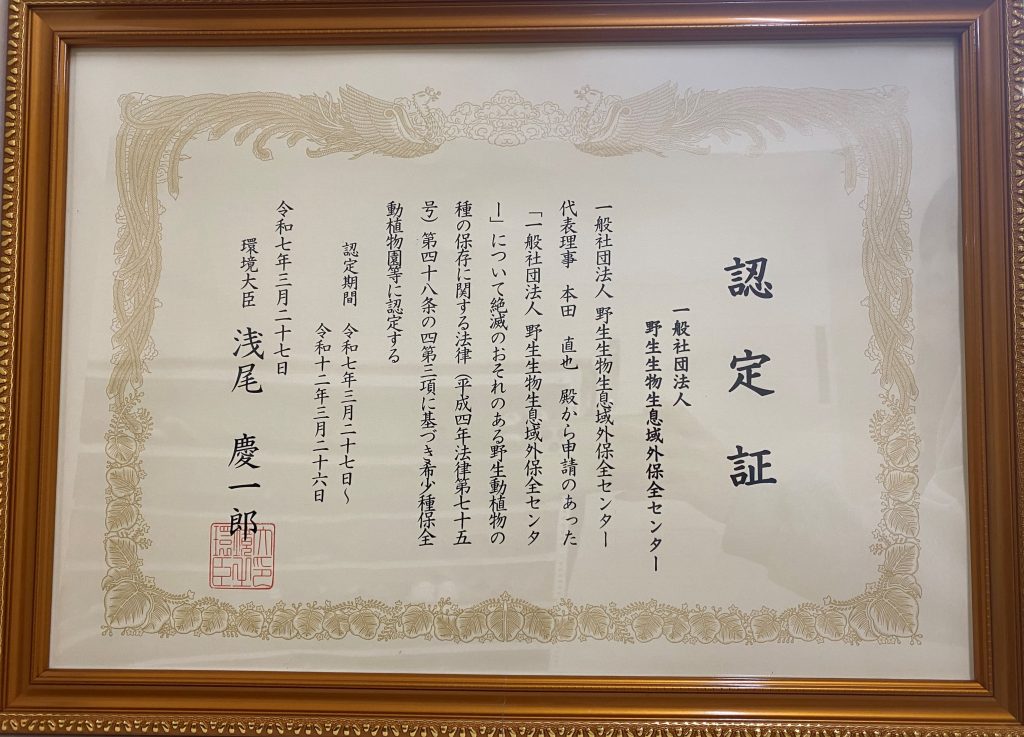 認定証
一般社団法人
野生生物生息域外保全センター
一般社団法人 野生生物生息域外保全センター
代表理事 本田 直也 殿から申請のあった
「一般社団法人 野生生物生息域外保全センタ
ー」について絶滅のおそれのある野生動植物の
種の保存に関する法律（平成四年法律第七十五
号）第四十八条の四第三項に基づき希少種保全
動植物園等に認定する
認定期間 令和七年三月二十七日～
令和十二年三月二十六日
令和七年三月二十七日
環境大臣 浅尾 慶一郎